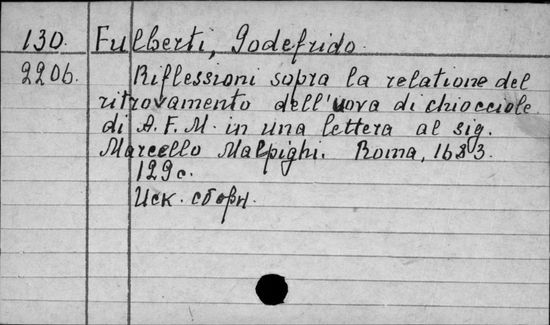 130. Fulberti, Godefrido.
2206. Riflessioni sopra la relatione del
ritrovamento dell'uova di chiocciole
di A. F. M. in una lettera al sig.
Marcello Malpighi. Roma, 1683.
129 с.
Иск. сборн.